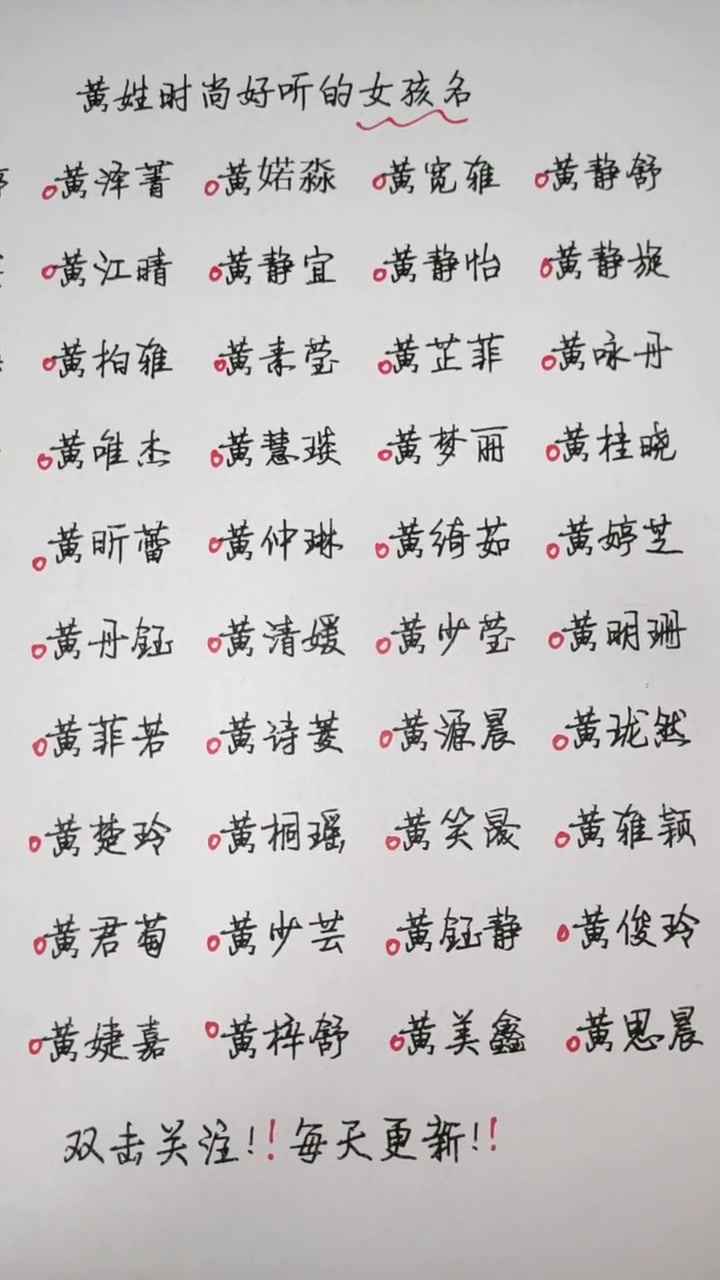 黄姓时尚好听的女孩名
黄泽菁 黄婼淼 黄宽雅 黄静舒
黄江晴 黄静宜 黄静怡 黄静旋
黄柏雅 黄素莹 黄芷菲 黄咏丹
黄唯杰 黄慧琰 黄梦丽 黄桂晓
黄昕蕾 黄仲琳 黄绮茹 黄婷芝
黄丹钰 黄清媛 黄少莹 黄明珊
黄菲若 黄诗菱 黄源晨 黄珑然
黄楚玲 黄桐瑶 黄笑晟 黄雅颖
黄君萄 黄少芸 黄钰静 黄俊玲
黄婕嘉 黄梓舒 黄美鑫 黄思晨
双击关注!!每天更新!!